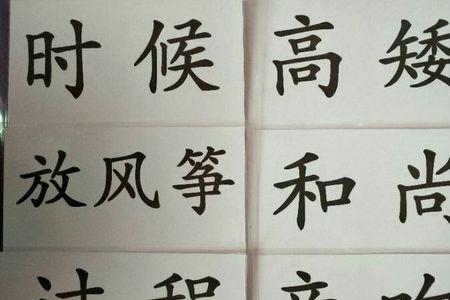 时候 高矮
放风筝 和尚
过程